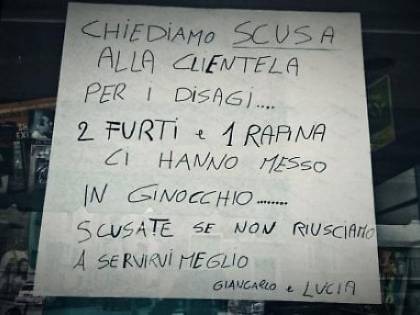 CHIEDIAMO SCUSA
ALLA CLIENTELA
PER I DISAGI....
2 FURTI e 1 RAPINA
CI HANNO MESSO
IN GINOCCHIO........
SCUSATE SE NON RIUSCIAMO
A SERVIRVI MEGLIO
GIANCARLO e LUCIA